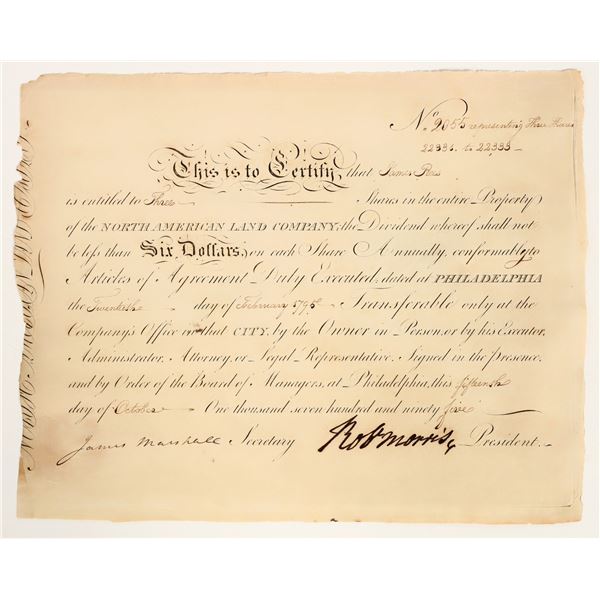 No. 2055 representing three shares
22336. to 22338.
This is to Certify, that James Rees
is entitled to Three Shares in the entire Property
of the NORTH AMERICAN LAND COMPANY; the Dividend whereof shall not
be less than Six Dollars, on each Share Annually, conformably to
Articles of Agreement Duly Executed; dated at PHILADELPHIA
the Twentieth day of February 1795 Transferable only at the
Company's Office in that CITY, by the Owner in Person, or by his Executor,
Administrator, Attorney, or Legal Representative. Signed in the presence,
and by Order of the Board of Managers, at Philadelphia, this fifteenth
day of October One thousand seven hundred and ninety five
James Marshall Secretary Rob Morris President.